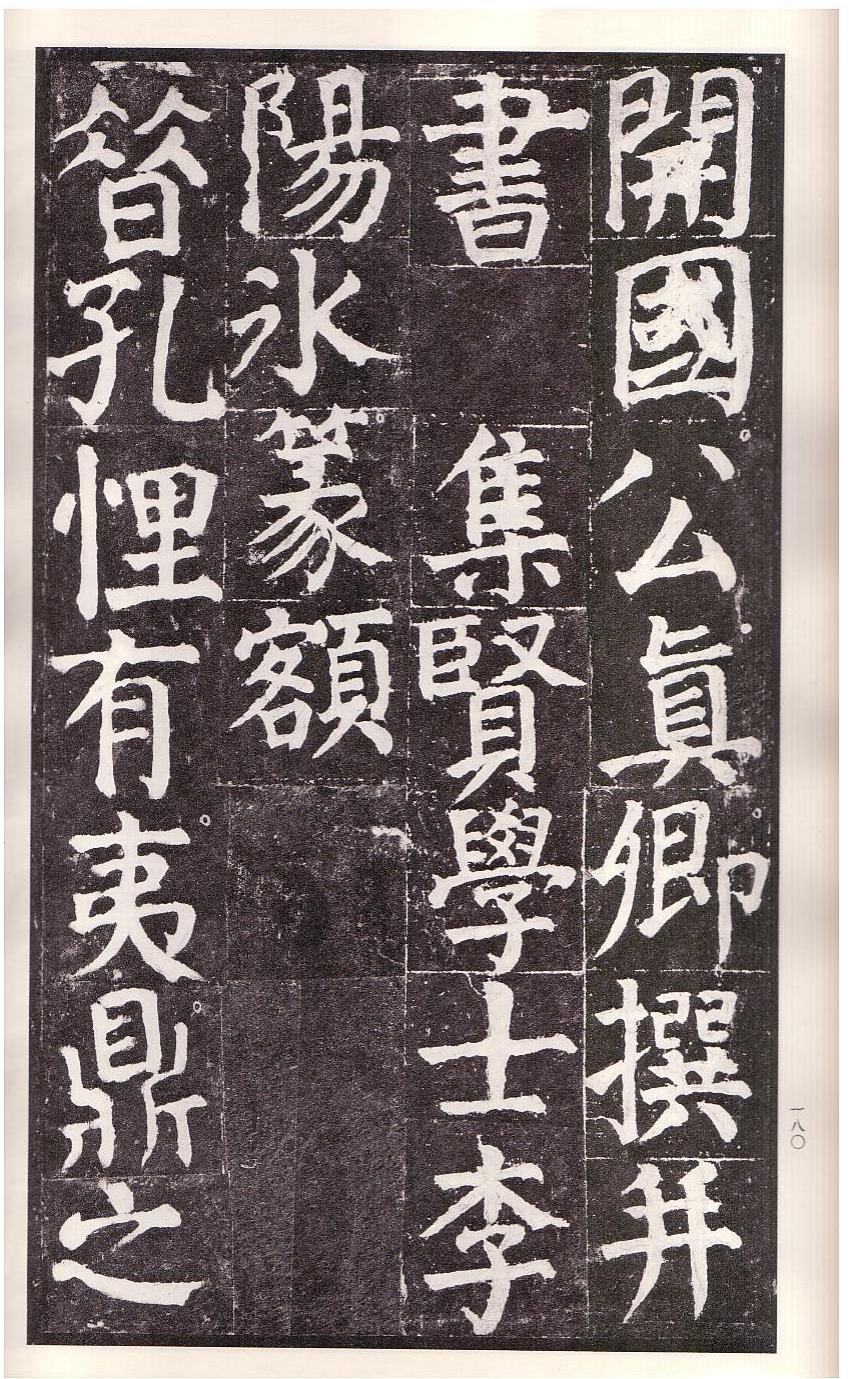 開國公真卿撰幷
書 集賢學士李
陽氷篆額
昔孔悝有夷鼎之
一八〇